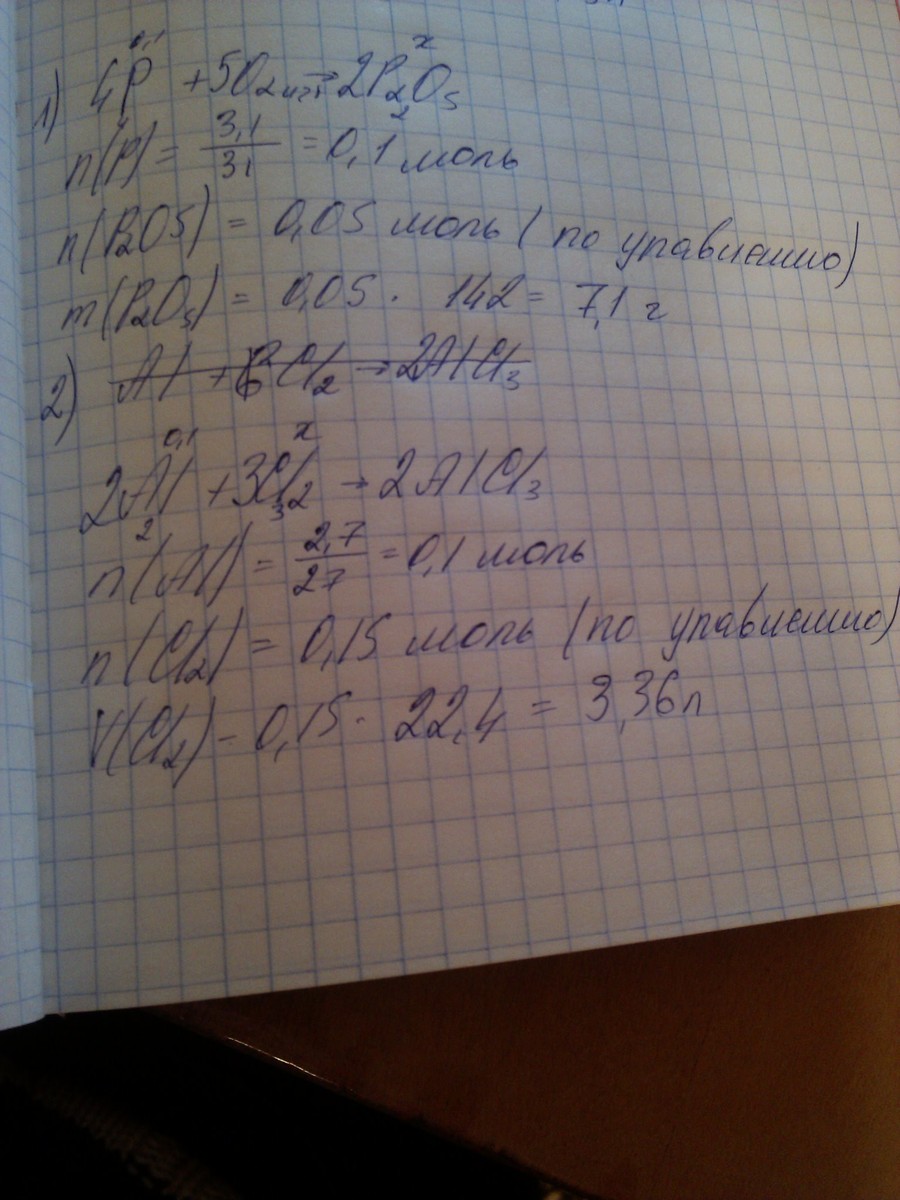 0,1 x
1) 4P + 5O2 изб → 2P2O5
2
n(P) = 3,1/31 = 0,1 моль
n(P2O5) = 0,05 моль (по уравнению)
m(P2O5) = 0,05 · 142 = 7,1 г
2) Al + Cl2 → 2AlCl3
0,1 x
2Al + 3Cl2 → 2AlCl3
2 3
n(Al) = 2,7/27 = 0,1 моль
n(Cl2) = 0,15 моль (по уравнению)
V(Cl2) = 0,15 · 22,4 = 3,36 л